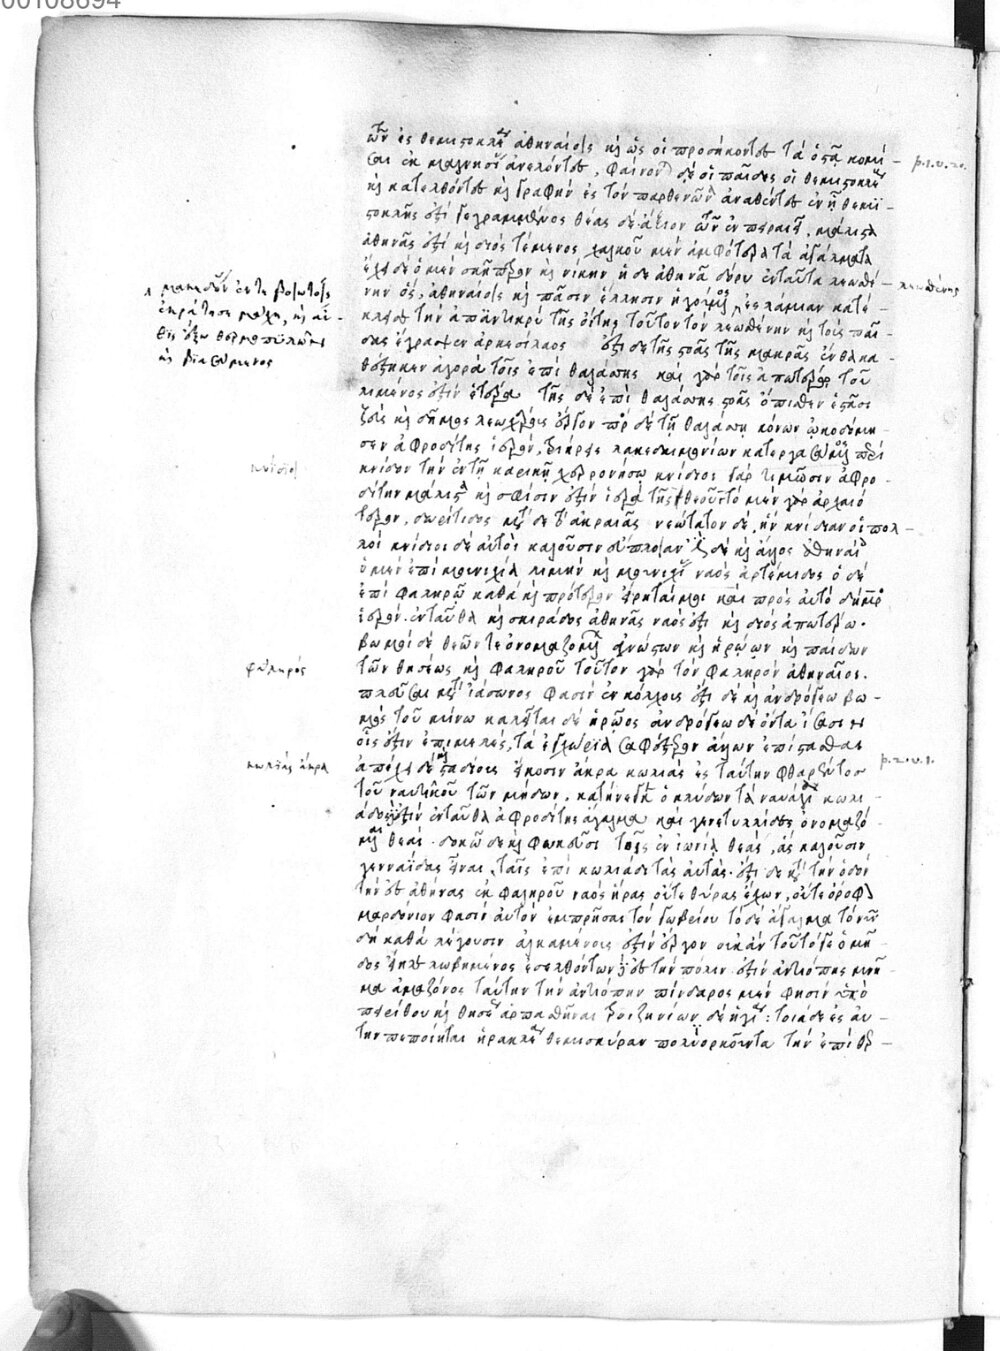 00108694
ὧν ἐς θεμιστοκλέα ἀθηναίοις καὶ ὡς οἱ προσήκοντες τὰ ὀστᾶ κομί-
σαι ἐκ μαγνησίας ἀνελόντες, φαίνονται δὲ οἱ παῖδες οἱ θεμιστοκλέους
καὶ κατελθόντες καὶ γραφὴν ἐς τὸν παρθενῶνα ἀναθέντες ἐν ᾗ θεμι-
στοκλῆς ἐστὶ γεγραμμένος θέας δὲ ἄξιον τῶν ἐν πειραιεῖ, μάλιστα
ἀθηνᾶς ἐστὶ καὶ διὸς τέμενος χαλκοῦ μὲν ἀμφότερα τὰ ἀγάλματα
ἔχει δὲ ὁ μὲν σκῆπτρον καὶ νίκην ἡ δὲ ἀθηνᾶ δόρυ ἐνταῦθα λεωσθέ-
νην ὃς, ἀθηναίοις καὶ πᾶσιν ἕλλησιν ἡγούμενος
κλησε τὴν ἀπαντικρὺ τῆς τοῦτον τὸν λεωσθένην καὶ τοὺς παῖ-
δας ἔγραψεν ἀρκεσίλαος ἔστι δὲ τῆς στοᾶς τῆς μακρᾶς ἔνθα κα-
θέστηκεν ἀγορὰ τοῖς ἐπὶ θαλάσσης καὶ γὰρ τοῖς ἀπωτέρω τοῦ
λιμένος ἐστὶν ἑτέρα τῆς δὲ ἐπὶ θαλάσσης στοᾶς ὄπισθεν ἑστᾶσι
ζεὺς καὶ δῆμος λεωχάρους ἔργον πρὸς δὲ τῇ θαλάσσῃ κόνων ᾠκοδόμη-
σεν ἀφροδίτης ἱερὸν, τριήρεις λακεδαιμονίων κατεργασάμενος περὶ
κνίδον τὴν ἐν τῇ καρικῇ χερρονήσῳ κνίδιοι γὰρ τιμῶσιν ἀφρο-
δίτην μάλιστα καὶ σφίσιν ἐστὶν ἱερὰ τῆς θεοῦ τὸ μὲν γὰρ ἀρχαιό
τερον, δωρίτιδος μετὰ δὲ τὸ ἀκραίας νεώτατον δὲ, ἣν κνιδίαν οἱ πολ-
λοὶ κνίδιοι δὲ αὐτοὶ καλοῦσιν εὔπλοιαν ἔστι δὲ καὶ ἄλλος ἀθηναίοις
ὁ μὲν ἐπὶ μουνυχίᾳ λιμὴν καὶ μουνυχίας ναὸς ἀρτέμιδος ὁ δὲ
ἐπὶ φαληρῷ καθὰ καὶ πρότερον εἴρηταί μοι καὶ πρὸς αὐτῷ δήμητρος
ἱερὸν. ἐνταῦθα καὶ σκιράδος ἀθηνᾶς ναός ἐστι καὶ διὸς ἀπωτέρω.
βωμοὶ δὲ θεῶν τε ὀνομαζομένων ἀγνώστων καὶ ἡρώων καὶ παίδων
τῶν θησέως καὶ φαληροῦ τοῦτον γὰρ τὸν φαληρὸν ἀθηναῖοι.
πλεῦσαι μετὰ ἰάσονος φασὶν ἐν κόλχοις ἔστι δὲ καὶ ἀνδρόγεω βω-
μὸς τοῦ μίνω καλεῖται δὲ ἥρωος ἀνδρόγεω δὲ ὄντα ἴσασιν
οἷς ἐστὶν ἐπιμελὲς, τὰ ἐγχώρια σαφέστερον ἄλλων ἐπίστασθαι
ἀπέχει δὲ σταδίους εἴκοσιν ἄκρα κωλιὰς ἐς ταύτην φθαρέντος
τοῦ ναυτικοῦ τῶν μήδων, κατήνεγκεν ὁ κλύδων τὰ ναυάγια κωλι-
άδος ἐστὶν ἐνταῦθα ἀφροδίτης ἄγαλμα καὶ γενετυλλίδες ὀνομαζό-
μεναι θεαί. δοκῶ δὲ καὶ φωκεῦσι τοῖς ἐν ἰωνίᾳ θεάς, ἃς καλοῦσιν
γενναΐδας εἶναι, ταῖς ἐπὶ κωλιάδι τὰς αὐτάς. ἔστι δὲ κατὰ τὴν ὁδὸν
τὴν ἐς ἀθήνας ἐκ φαληροῦ ναὸς ἥρας οὔτε θύρας ἔχων, οὔτε ὄροφον
μαρδόνιον φασὶν αὐτὸν ἐμπρῆσαι τὸν γωβρύου τὸ δὲ ἄγαλμα τὸ νῦν
δὴ καθὰ λέγουσιν ἀλκαμένους ἐστὶν ἔργον οὐκ ἂν τοῦτό γε ὁ μῆ-
δος εἴη λελωβημένος ἐσελθόντων ἐς τὴν πόλιν ἐστὶν ἀντιόπης μνῆ-
μα ἀμαζόνος ταύτην τὴν ἀντιόπην πίνδαρος μὲν φησιν ὑπὸ
πειρίθου καὶ θησέως ἁρπασθῆναι τροιζηνίων δὲ ἡγίας: τοιάδε ἐς αὐ-
τὴν πεποίηται ἡρακλέα θεμίσκυραν πολιορκοῦντα τὴν ἐπὶ θερ-
λεωσθένης
κνίδιοι
φαληρός
κωλιὰς ἄκρα